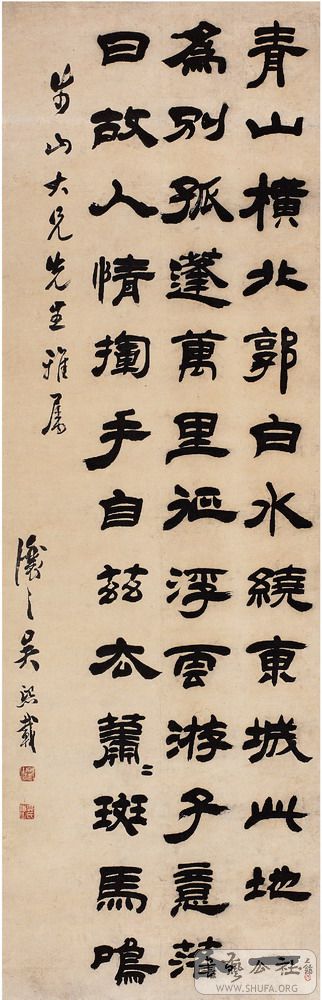 青山橫北郭白水繞東城此地一
為別孤蓬萬里征浮雲游子意落
日故人情揮手自茲去蕭〻斑馬鳴
山大兄先生雅屬
讓之吳熙載
藝公社
WWW.SHUFA.ORG